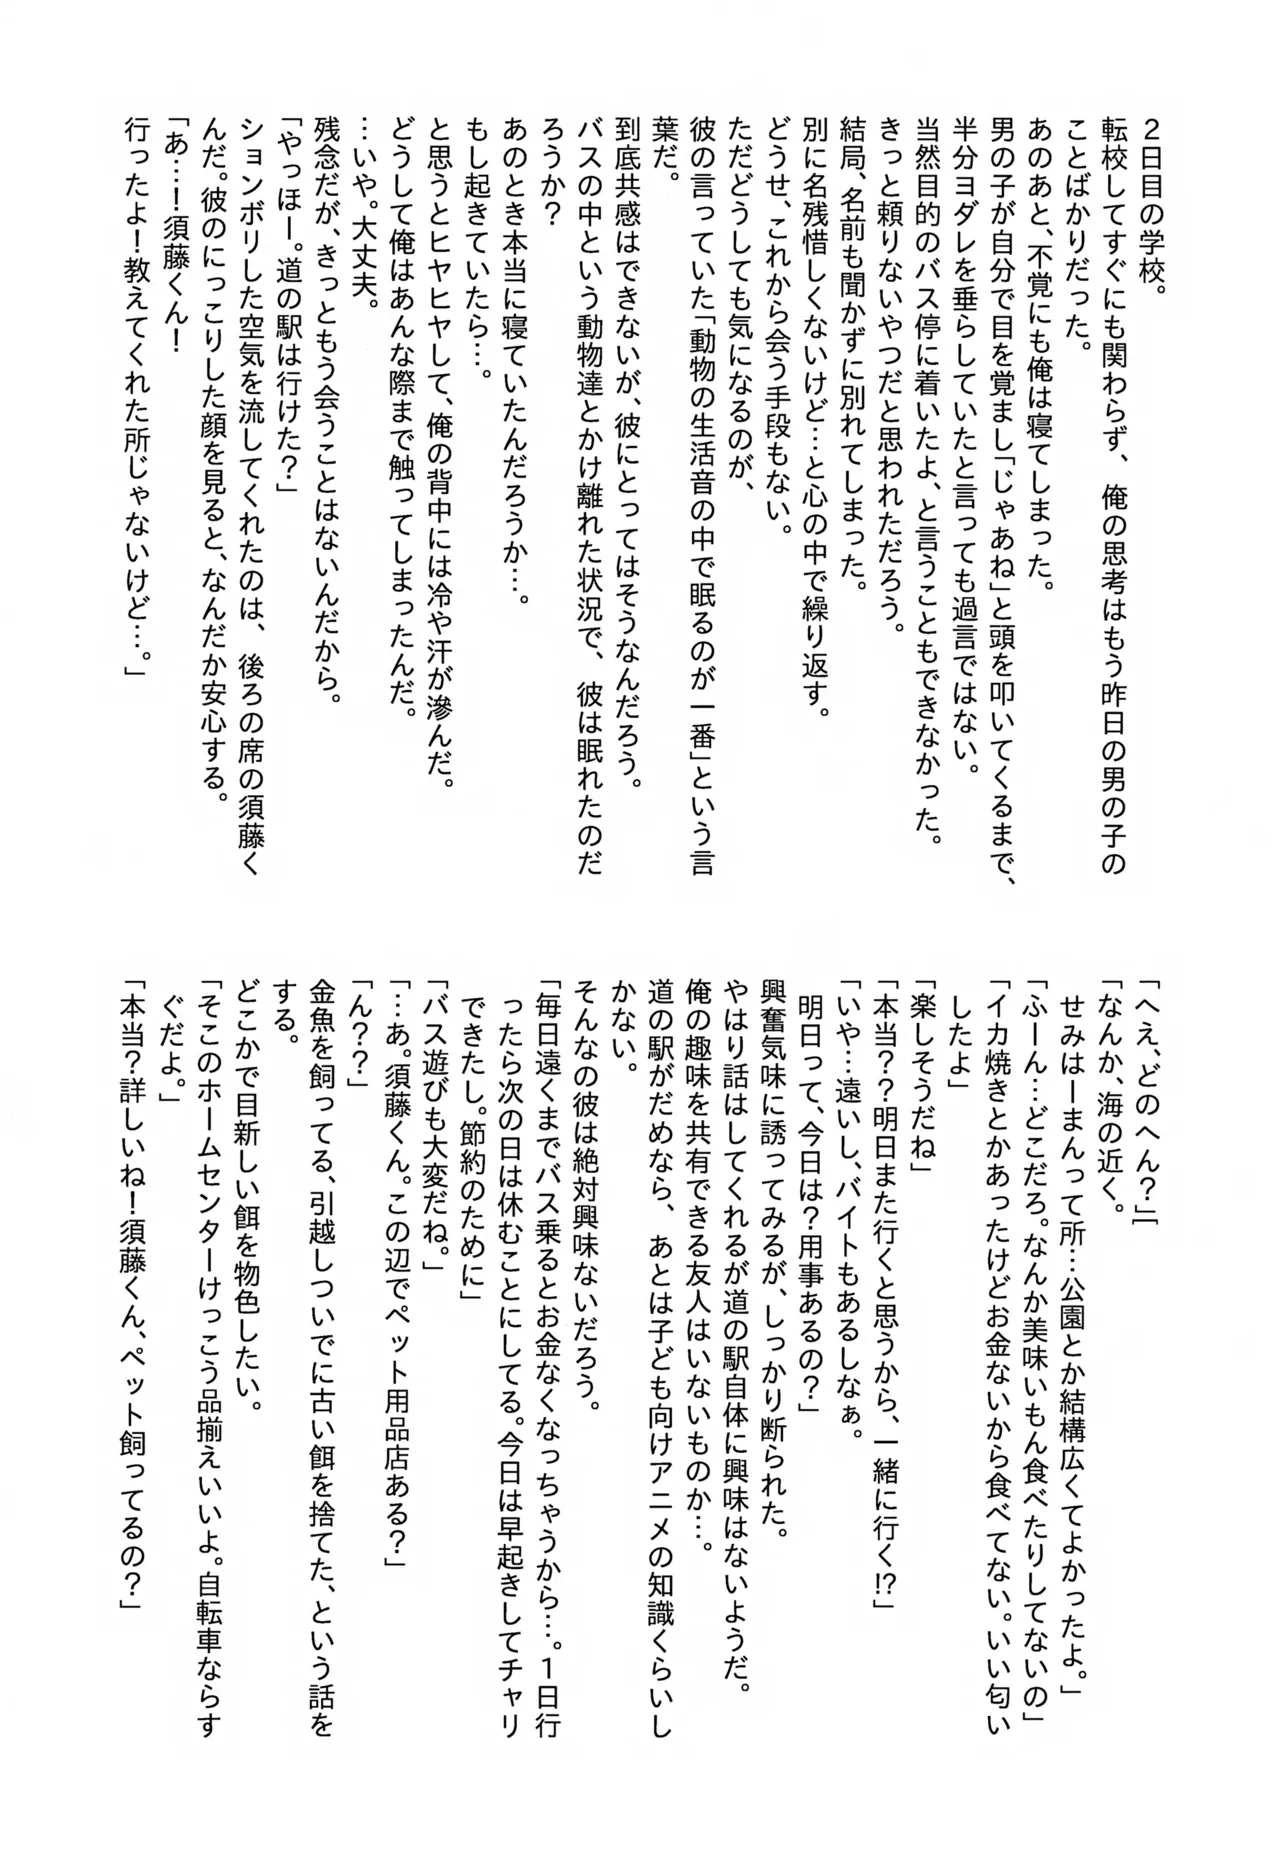 ２日目の学校。
転校してすぐにも関わらず、俺の思考はもう昨日の男の子の
ことばかりだった。
あのあと、不覚にも俺は寝てしまった。
男の子が自分で目を覚まし「じゃあね」と頭を叩いてくるまで、
半分ヨダレを垂らしていたと言っても過言ではない。
当然目的のバス停に着いたよ、と言うこともできなかった。
きっと頼りないやつだと思われただろう。
結局、名前も聞かずに別れてしまった。
別に名残惜しくないけど…と心の中で繰り返す。
どうせ、これから会う手段もない。
ただどうしても気になるのが、
彼の言っていた「動物の生活音の中で眠るのが一番」という言
葉だ。
到底共感はできないが、彼にとってはそうなんだろう。
バスの中という動物達とかけ離れた状況で、彼は眠れたのだ
ろうか？
あのとき本当に寝ていたんだろうか…。
もし起きていたら…。
と思うとヒヤヒヤして、俺の背中には冷や汗が滲んだ。
どうして俺はあんな際まで触ってしまったんだ。
…いや。大丈夫。
残念だが、きっともう会うことはないんだから。
「やっほー。道の駅は行けた？」
ションボリした空気を流してくれたのは、後ろの席の須藤く
んだ。彼のにっこりした顔を見ると、なんだか安心する。
「あ…！須藤くん！
行ったよ！教えてくれた所じゃないけど…。」
「へえ、どのへん？」]
「なんか、海の近く。
せみはーまんって所…公園とか結構広くてよかったよ。」
「ふーん…どこだろ。なんか美味いもん食べたりしてないの」
「イカ焼きとかあったけどお金ないから食べてない。いい匂い
したよ」
「楽しそうだね」
「本当？？明日また行くと思うから、一緒に行く!?」
「いや…遠いし、バイトもあるしなぁ。
明日って、今日は？用事あるの？」
興奮気味に誘ってみるが、しっかり断られた。
やはり話はしてくれるが道の駅自体に興味はないようだ。
俺の趣味を共有できる友人はいないものか…。
道の駅がだめなら、あとは子ども向けアニメの知識くらいし
かない。
そんなの彼は絶対興味ないだろう。
「毎日遠くまでバス乗るとお金なくなっちゃうから…。１日行
ったら次の日は休むことにしてる。今日は早起きしてチャリ
できたし。節約のために」
「バス遊びも大変だね。」
「…あ。須藤くん。この辺でペット用品店ある？」
「ん？？」
金魚を飼ってる、引越しついでに古い餌を捨てた、という話を
する。
どこかで目新しい餌を物色したい。
「そこのホームセンターけっこう品揃えいいよ。自転車ならす
ぐだよ。」
「本当？詳しいね！須藤くん、ペット飼ってるの？」